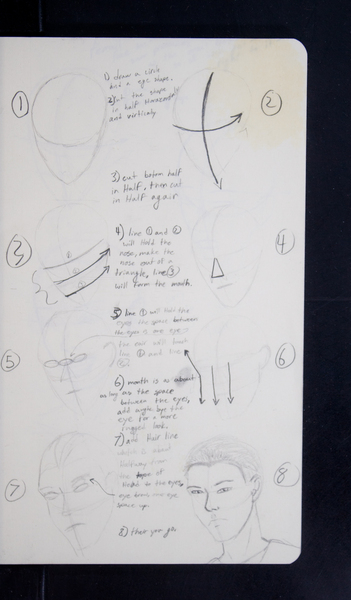 1) draw a circle
and a egg shape.
2) cut the shape
in half horizontally
and vertically
1
2
3) cut bottom half
in Half, then cut
in Half again
3
4
4) line ① and ②
will Hold the
nose, make the
nose out of a
triangle, line ③
will form the mouth.
5
6
5) line ① will hold the
eyes the space between
the eyes is one eye
the ear will touch
line ① and line
6) mouth is as
as long as the space
between the eyes,
add angle bye the
eye for a more
rugged look.
7) add Hair line
which is
of
to the eyes
space up.
7
8
8) there you go